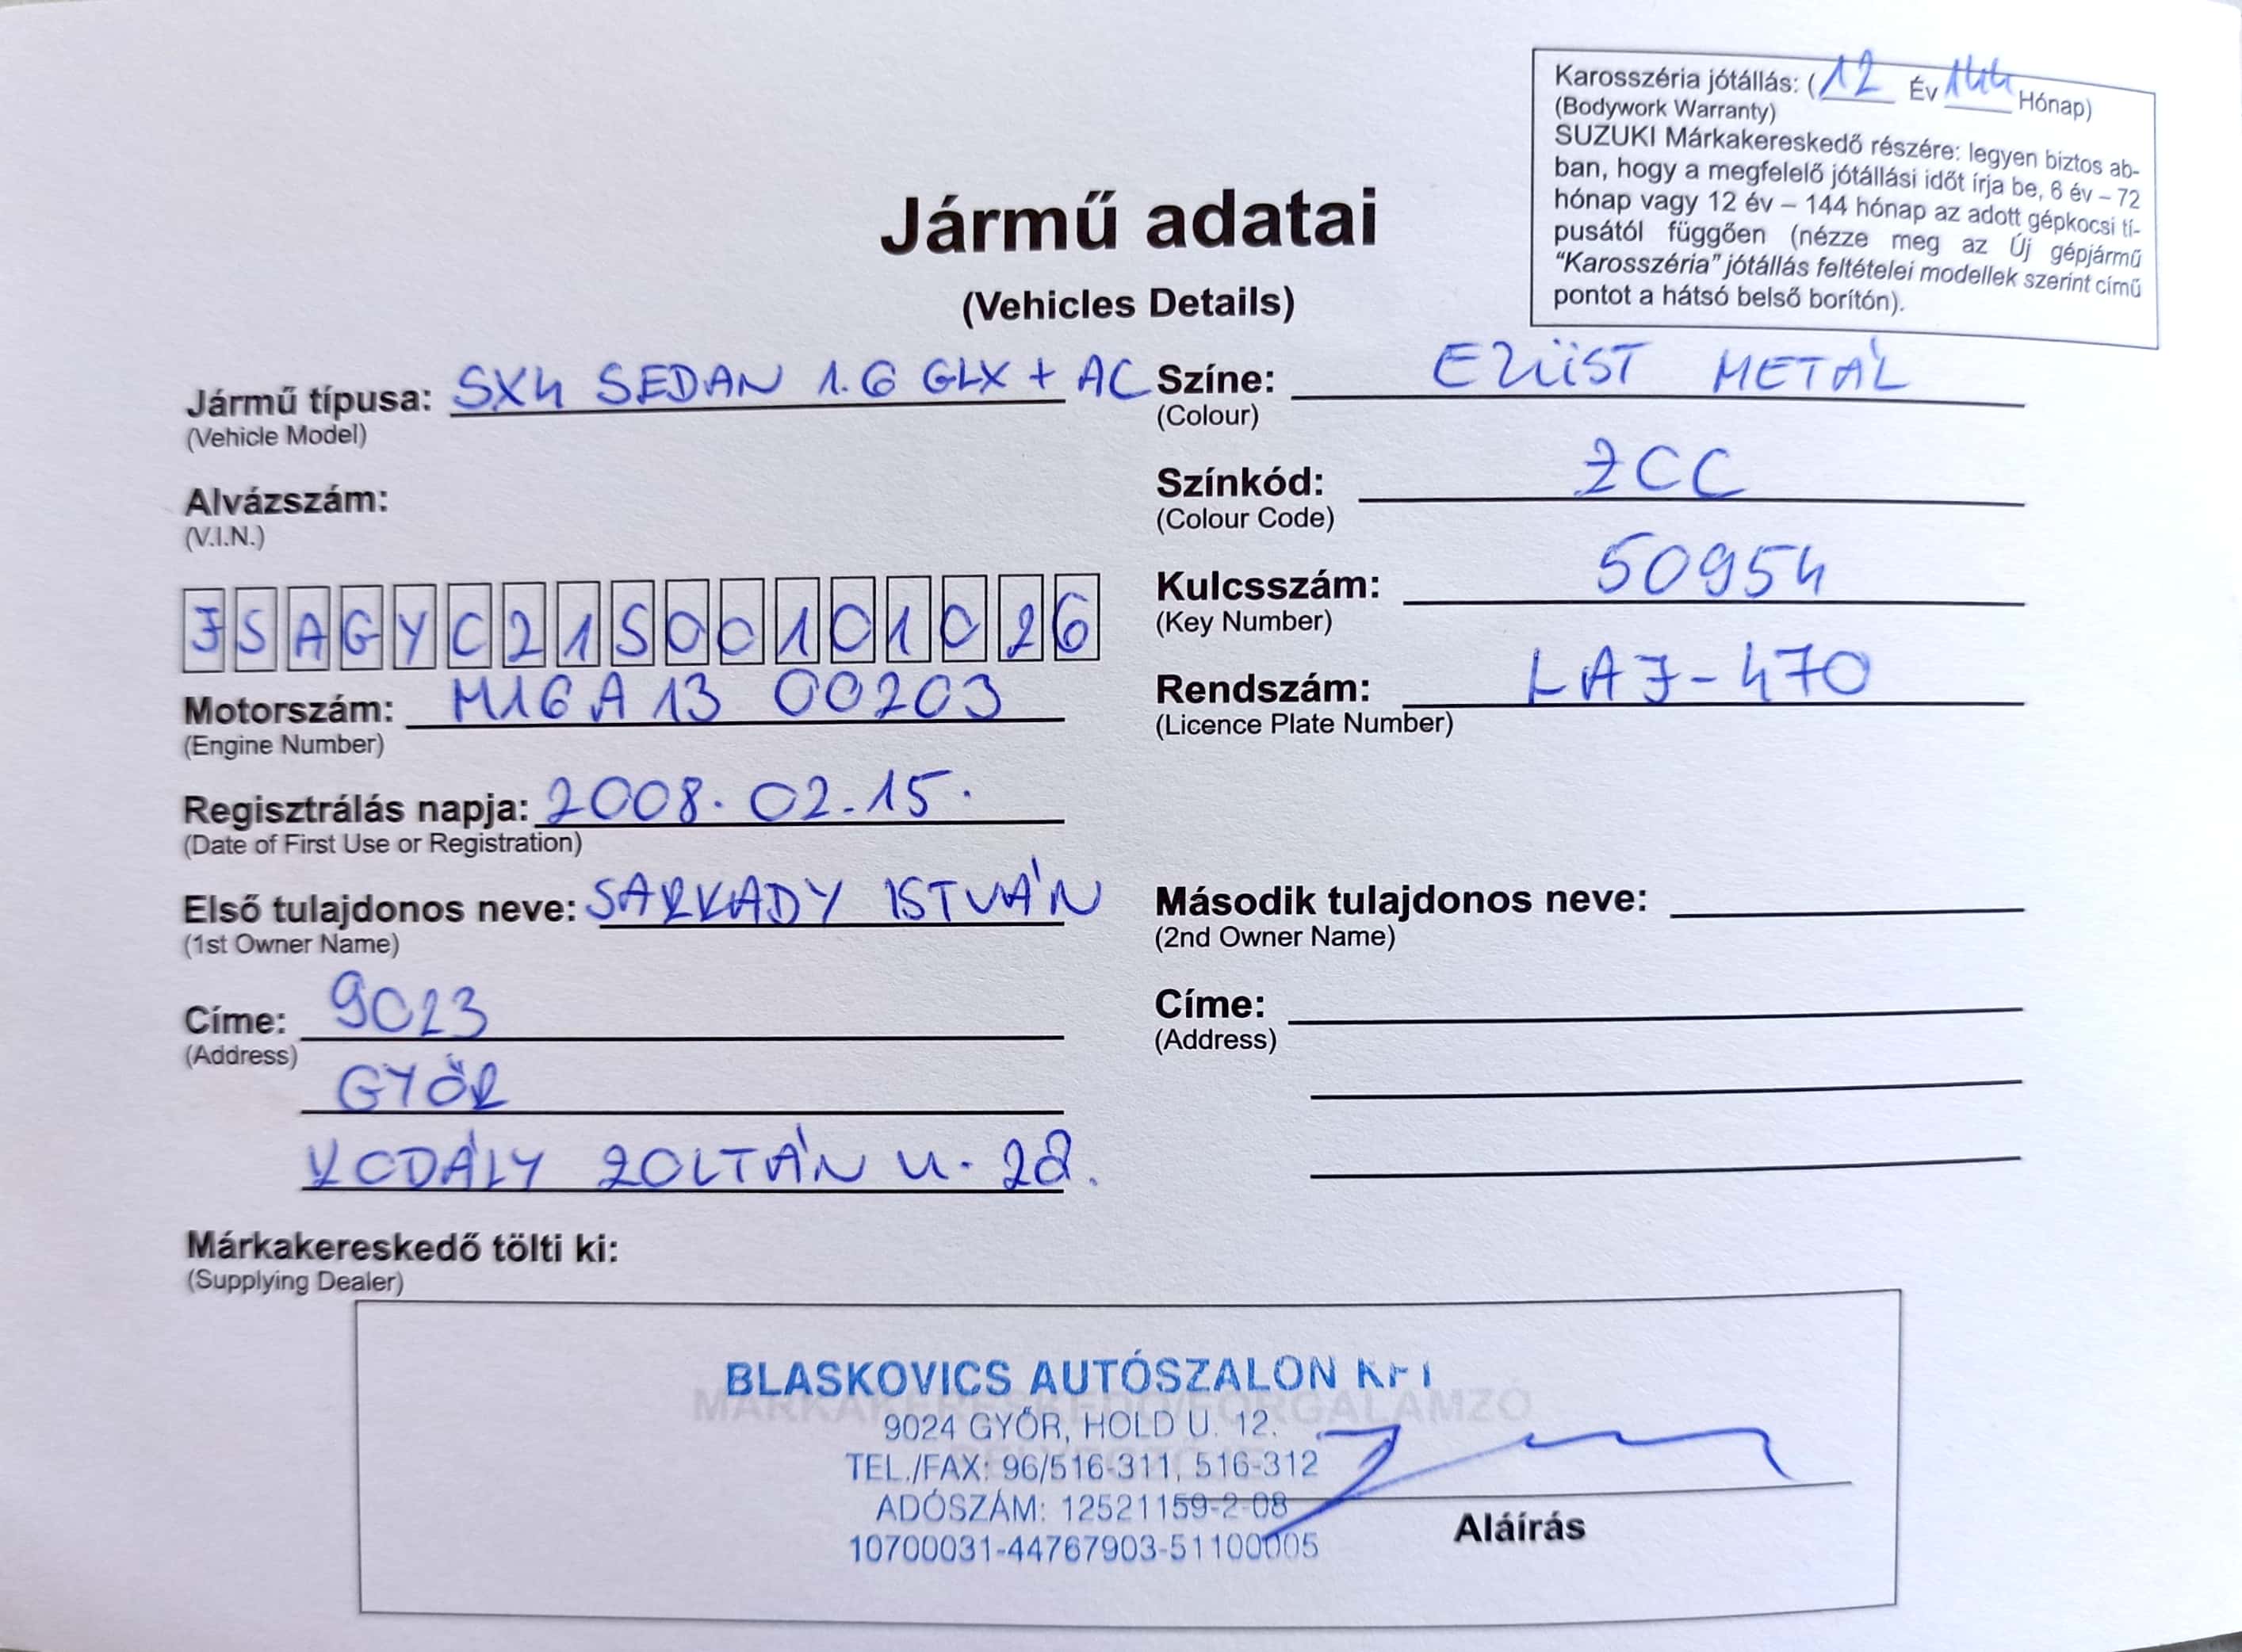 Karosszéria jótállás: (12 Év 144 Hónap)
(Bodywork Warranty)
SUZUKI Márkakereskedő részére: legyen biztos ab-
ban, hogy a megfelelő jótállási időt írja be, 6 év – 72
hónap vagy 12 év – 144 hónap az adott gépkocsi tí-
pusától függően (nézze meg az Új gépjármű
"Karosszéria" jótállás feltételei modellek szerint című
pontot a hátsó belső borítón).
Jármű adatai
(Vehicles Details)
Jármű típusa: SX4 SEDAN 1.6 GLX + AC
(Vehicle Model)
Színe: EZÜST METÁL
(Colour)
Alvázszám:
(V.I.N.)
Színkód: ZCC
(Colour Code)
JSAGYC21S00101026
Kulcsszám: 50954
(Key Number)
Motorszám: M16A13 00203
(Engine Number)
Rendszám: LAJ-470
(Licence Plate Number)
Regisztrálás napja: 2008. 02.15.
(Date of First Use or Registration)
Első tulajdonos neve: SARKADY ISTVÁN
(1st Owner Name)
Második tulajdonos neve:
(2nd Owner Name)
Címe: 9023
(Address)
GYŐR
KODÁLY ZOLTÁN U. 28.
Címe:
(Address)
Márkakereskedő tölti ki:
(Supplying Dealer)
BLASKOVICS AUTÓSZALON KFT
MÁRKAKERESKEDŐ/FORGALAMZÓ
9024 GYŐR, HOLD U. 12.
TEL./FAX: 96/516-311, 516-312
ADÓSZÁM: 12521159-2-08
10700031-44767903-51100005
Aláírás